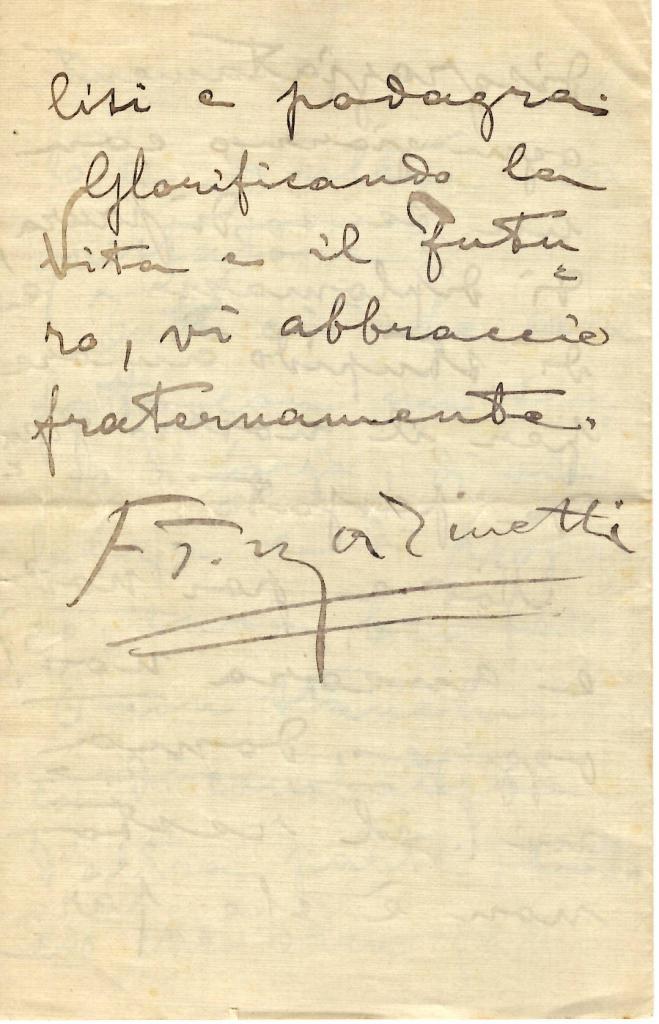 lisi e podagra.
Glorificando la
Vita e il Futu=
ro, vi abbraccio
fraternamente.
F. T. Marinetti